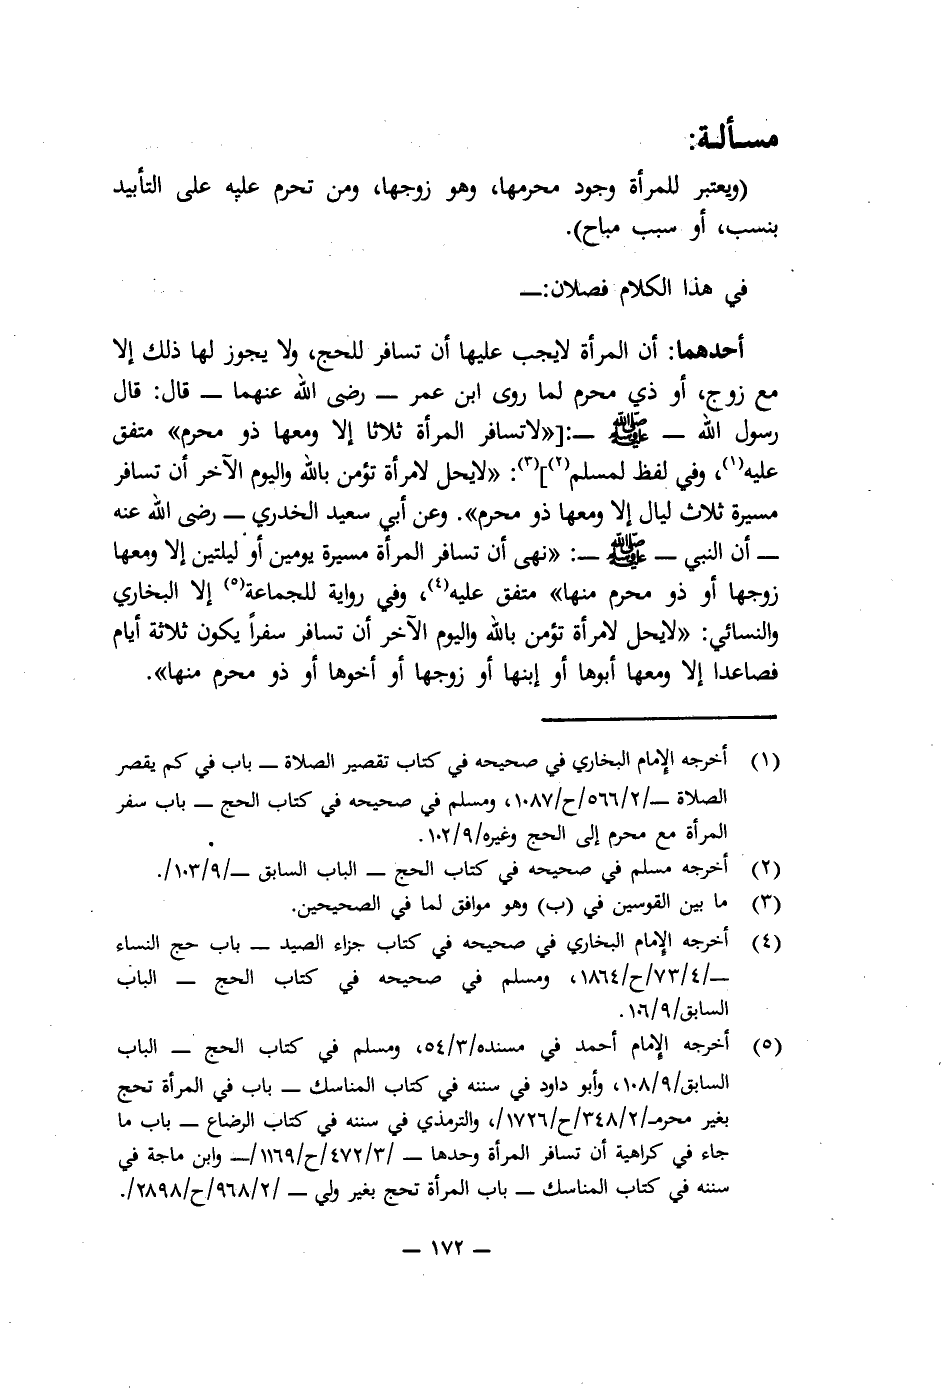 مسألة:
(ويعتبر للمرأة وجود محرمها، وهو زوجها، ومن تحرم عليه على التأبيد
بنسب، أو سبب مباح).
في هذا الكلام فصلان:ــ
أحدهما: أن المرأة لايجب عليها أن تسافر للحج، ولا يجوز لها ذلك إلا
مع زوج، أو ذي محرم لما روى ابن عمر ــ رضى الله عنهما ــ قال: قال
رسول الله ــ ﷺ ــ:[«لاتسافر المرأة ثلاثا إلا ومعها ذو محرم» متفق
عليه(١)، وفي لفظ لمسلم(٢)](٣): «لايحل لامرأة تؤمن بالله واليوم الآخر أن تسافر
مسيرة ثلاث ليال إلا ومعها ذو محرم». وعن أبي سعيد الخدري ــ رضى الله عنه
ــ أن النبي ــ ﷺ ــ: «نهى أن تسافر المرأة مسيرة يومين أو ليلتين إلا ومعها
زوجها أو ذو محرم منها» متفق عليه(٤)، وفي رواية للجماعة(٥) إلا البخاري
والنسائي: «لايحل لامرأة تؤمن بالله واليوم الآخر أن تسافر سفراً يكون ثلاثة أيام
فصاعدا إلا ومعها أبوها أو إبنها أو زوجها أو أخوها أو ذو محرم منها».
(١) أخرجه الإمام البخاري في صحيحه في كتاب تقصير الصلاة ــ باب في كم يقصر
الصلاة ــ/٢/٥٦٦/ح/١٠٨٧، ومسلم في صحيحه في كتاب الحج ــ باب سفر
المرأة مع محرم إلى الحج وغيره/٩/١٠٢.
(٢) أخرجه مسلم في صحيحه في كتاب الحج ــ الباب السابق ــ/٩/١٠٣/.
(٣) ما بين القوسين في (ب) وهو موافق لما في الصحيحين.
(٤) أخرجه الإمام البخاري في صحيحه في كتاب جزاء الصيد ــ باب حج النساء
ــ/٤/٧٣/ح/١٨٦٤، ومسلم في صحيحه في كتاب الحج ــ الباب
السابق/٩/١٠٦.
(٥) أخرجه الإمام أحمد في مسنده/٣/٥٤، ومسلم في كتاب الحج ــ الباب
السابق/٩/١٠٨، وأبو داود في سننه في كتاب المناسك ــ باب في المرأة تحج
بغير محرمـ/٢/٣٤٨/ح/١٧٢٦/، والترمذي في سننه في كتاب الرضاع ــ باب ما
جاء في كراهية أن تسافر المرأة وحدها ــ /٣/٤٧٢/ح/١١٦٩/ــ وابن ماجة في
سننه في كتاب المناسك ــ باب المرأة تحج بغير ولي ــ /٢/٩٦٨/ح/٢٨٩٨/.
ــ ١٧٢ ــ